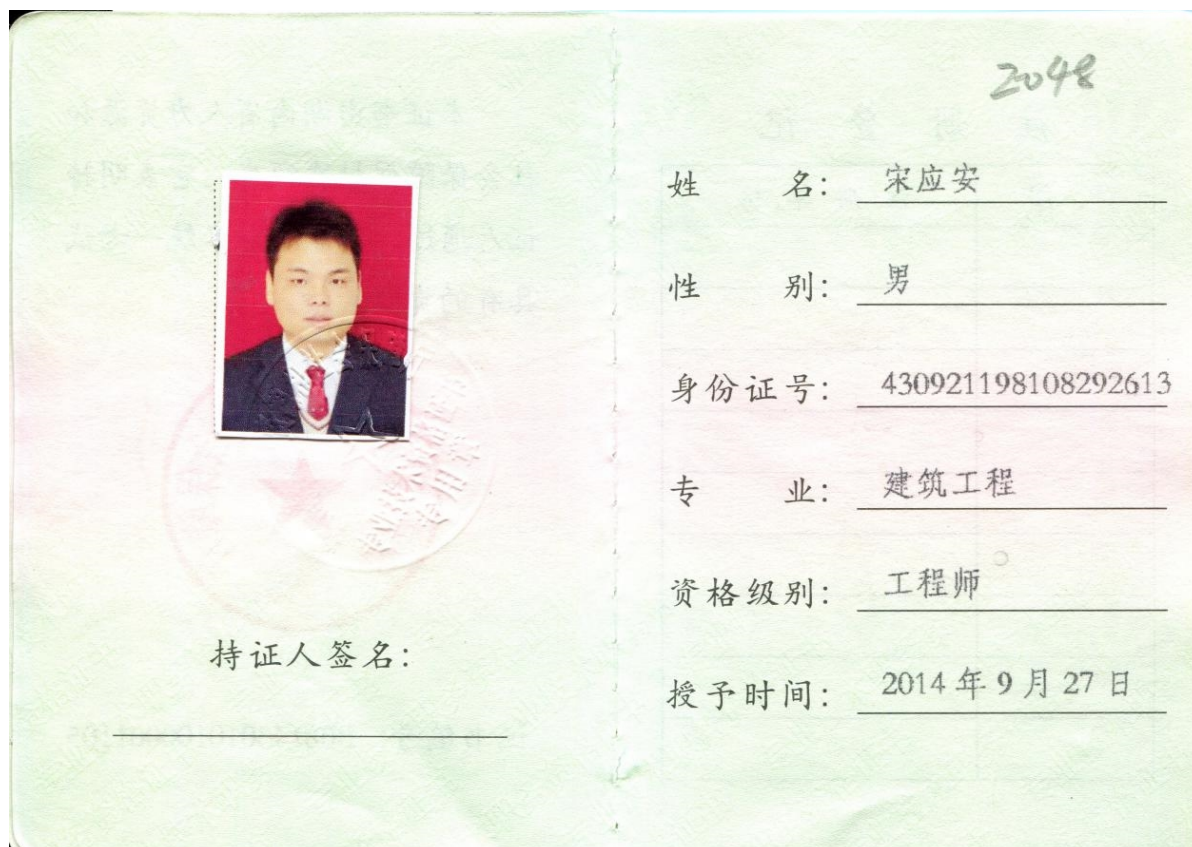 持证人签名：
2048
姓　　名： 宋应安
性　　别： 男
身份证号： 430921198108292613
专　　业： 建筑工程
资格级别： 工程师
授予时间： 2014 年 9 月 27 日